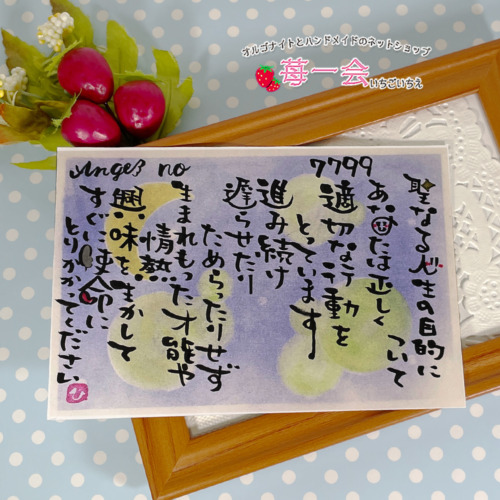 オルゴナイトとハンドメイドのネットショップ
苺一会
いちごいちえ
Angel no
7799
聖なる人生の目的に
ついて
あなたは正しく
適切な行動を
とっています
進み続け
遅らせたり
ためらったりせず
生まれもった才能や
情熱
興味を生かして
すぐに使命に
とりかかてください